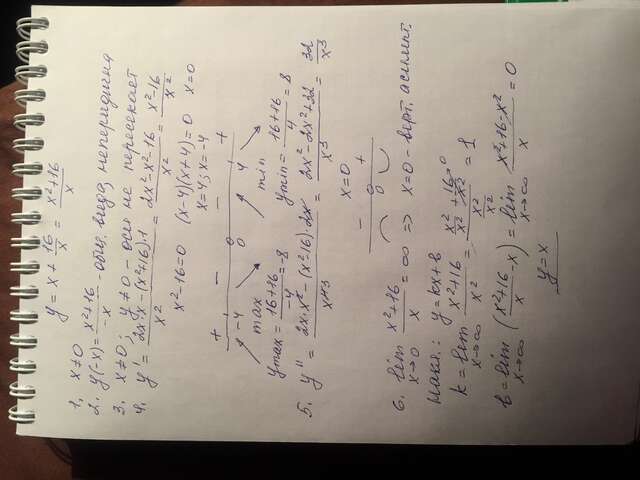 y = x + 16/x = (x²+16)/x
1. x ≠ 0
2. y(-x) = (x²+16)/-x - общ. вида, непериодична
3. x ≠ 0; y ≠ 0 - оси не пересекает
4. y' = (2x·x - (x²+16)·1)/x² = (2x² - x² - 16)/x² = (x² - 16)/x²
x² - 16 = 0 (x-4)(x+4) = 0 x = 0
x = 4; x = -4
+ - - +
-4 0 4
max min
y max = (16+16)/-4 = -8 y min = (16+16)/4 = 8
5. y'' = (2x·x² - (x²-16)·2x)/x⁴³ = (2x² - 2x² + 32)/x³ = 32/x³
x = 0
- +
0
6. lim x→0 (x²+16)/x = ∞ => x = 0 - верт. асимпт.
Накл.: y = kx + b
k = lim x→∞ (x²+16)/x² = (x²/x² + 16/x²→0)/(x²/x²) = 1
b = lim x→∞ ((x²+16)/x - x) = lim x→∞ (x²+16-x²)/x = 0
y = x